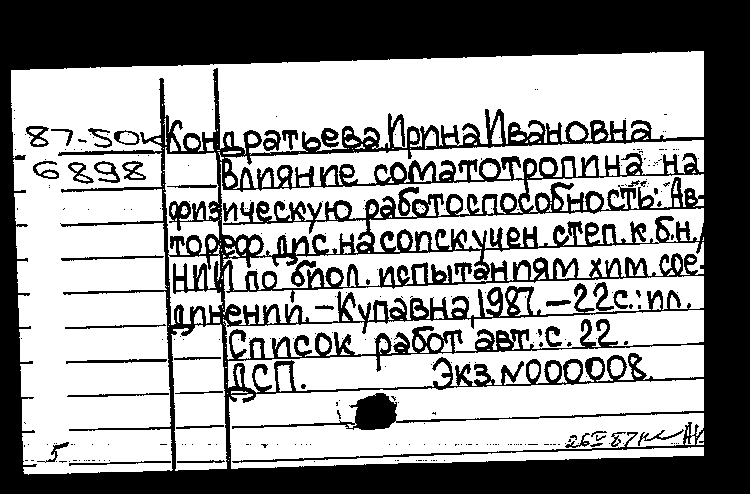 87-5ОК Кондратьева, Ирина Ивановна.
6898 Влияние соматотропина на
физическую работоспособность: Ав-
тореф. дис. на соиск. учен. степ. к.б.н./
НИИ по биол. испытаниям хим. сое-
динений. – Купавна, 1987. – 22 с.: ил.
Список работ авт.: с. 22.
ДСП. Экз. N000008.
5 26 V 87